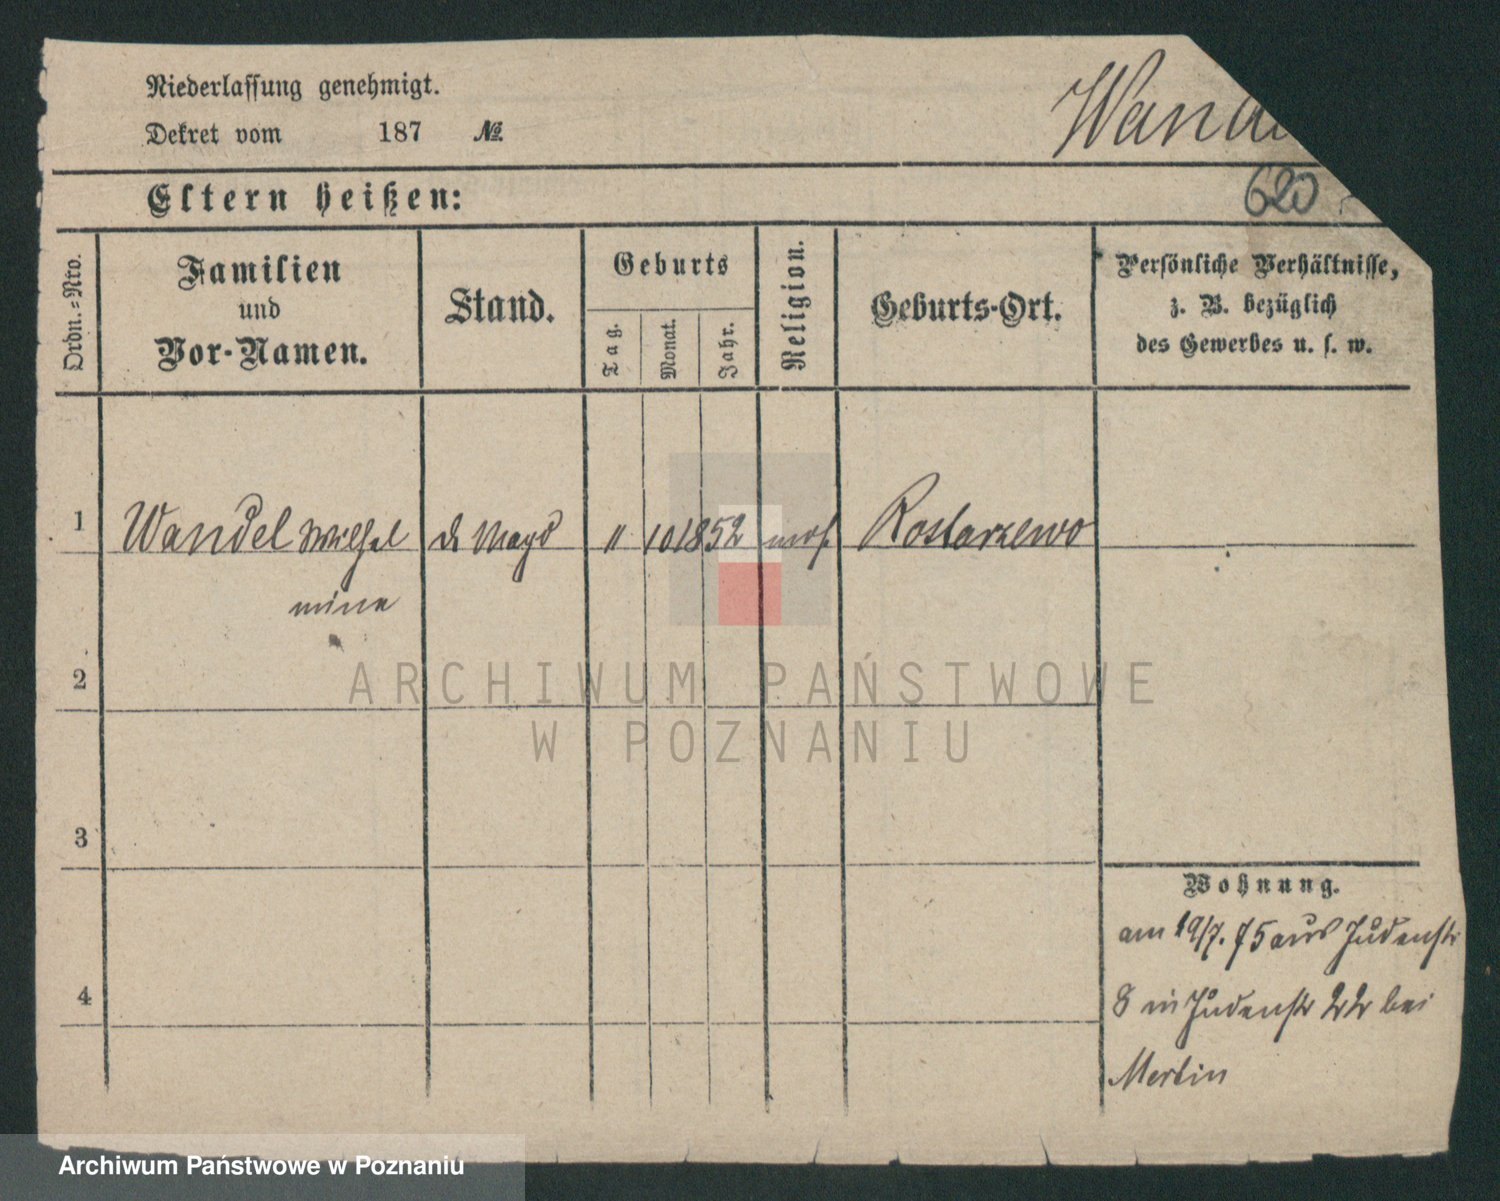 Niederlassung genehmigt.
Dekret vom 187 №
Wande
620
Eltern heißen:
Ordn.-Nro.
Familien
und
Vor-Namen.
Stand.
Geburts
Tag.
Monat.
Jahr.
Religion.
Geburts-Ort.
Persönliche Verhältnisse,
z. B. bezüglich
des Gewerbes u. s. w.
1 Wandel Wilhel d. Magd " 10 1852 mos. Rostarzewo
mine
2
3
4
Wohnung.
am 19/7. 75 aus Judenstr
8 in Judenstr 22 bei
ARCHIWUM PAŃSTWOWE
W POZNANIU
Archiwum Państwowe w Poznaniu